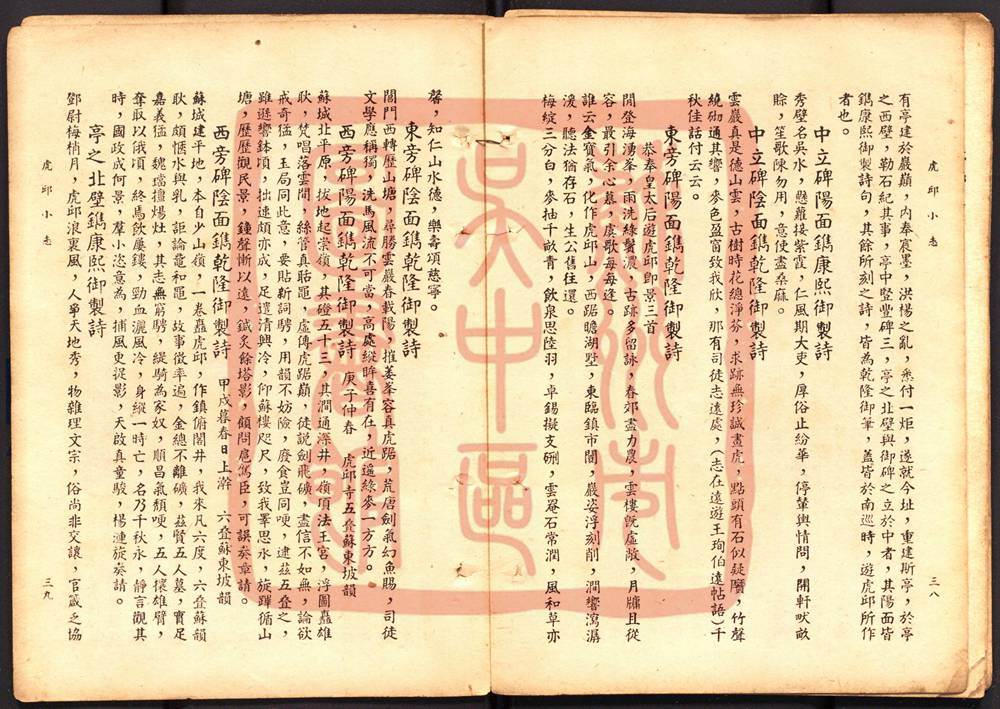 虎邱小志
三八
有亭建於巖巔，內奉宸墨，洪楊之亂，悉付一炬，遂就今址，重建斯亭，於亭
之西壁，勒石紀其事，亭中豎豐碑三，亭之北壁與御碑之立於中者，其陽面皆
鐫康熙御製詩句，其餘所刻之詩，皆為乾隆御筆，蓋皆於南巡時，遊虎邱所作
者也。
中立碑陽面鐫康熙御製詩
秀壁名吳水，懸蘿接紫霞，仁風期大吏，厚俗止紛華，停輦輿情問，開軒吠畝
賒，笙歌陳勿用，意使盡桑麻。
中立碑陰面鐫乾隆御製詩
雲巖真是德山雲，古樹時花總淨芬，求跡無珍誠畫虎，點頭有石似疑麕，竹聲
繞砌通其響，麥色盈窗致我欣，那有司徒志遠處，（志在遠遊王珣伯遠帖語）千
秋佳話付云云。
東旁碑陽面鐫乾隆御製詩
恭奉皇太后遊虎邱即景三首
閒登海湧峯，雨洗綠鬟濃，古跡多留詠，春郊盡力農，雲樓旣虛敞，月牖且從
容，最引余心慕，虞歌每每逢。
誰云金寶氣，化作虎邱山，西踞瞻湖墅，東臨鎮市闤，巖姿浮刻削，澗響瀉潺
湲，聽法猶存石，生公舊往還。
梅綻三分白，麥抽千畝青，飲泉思陸羽，卓錫擬支硎，雲菴石常潤，風和草亦
馨，知仁山水德，樂壽頌慈寧。
東旁碑陰面鐫乾隆御製詩
閶門西轉歷山塘，尋勝雲巖春載陽，摧萎峯容真虎踞，荒唐劍氣幻魚賜，司徒
文學應稱獨，洗馬風流不可當，高處縱眸喜有在，近遥綠麥一方方。
西旁碑陽面鐫乾隆御製詩　庚子仲春　虎邱寺五叠蘇東坡韻
蘇城北平原，拔地起崇嶺，其磴五十三，其澗通深井，嶺項法王宮，浮圖矗雄
耿，梵唱落雲間，絲管真聒黽，虛傳虎踞巔，徒說劍飛礦，盡信不如無，論欲
戒奇猛，玉局同此意，要貼新詞騁，用韻不妨險，廢食豈同哽，逮茲五叠之，
雖遜響鉢頃，拙速頗亦成，足遣清興冷，仰蘇樓咫尺，致我睪思永，旋蹕循山
塘，歷歷觀民景，鐘聲惭以遠，鍼炙餘塔影，顧問扈篤臣，可誤奏章請。
西旁碑陰面鐫乾隆御製詩　甲戌暮春日上澣　六叠蘇東坡韻
蘇城建平地，本自少山嶺，一卷矗虎邱，作鎮俯閭井，我來凡六度，六叠蘇韻
耿，頗愜水與乳，詎論竜和黽，故事徵率遍，金總不離礦，茲賢五人墓，實足
嘉義猛，魏璫擅煬灶，其志無窮騁，緹騎為家奴，順昌氣頹哽，五人攘雄臂，
奪取以俄頃，終焉飲屢鏤，勁血灑風冷，身縱一時亡，名乃千秋永，靜言觀其
時，國政成何景，羣小恣意為，捕風更捉影，天啟真童騃，楊漣旋奏請。
亭之北壁鐫康熙御製詩
鄧尉梅梢月，虎邱浪裏風，人䇫天地秀，物雜理文宗，俗尚非交讓，官箴之協
虎邱小志
三九
吳中區